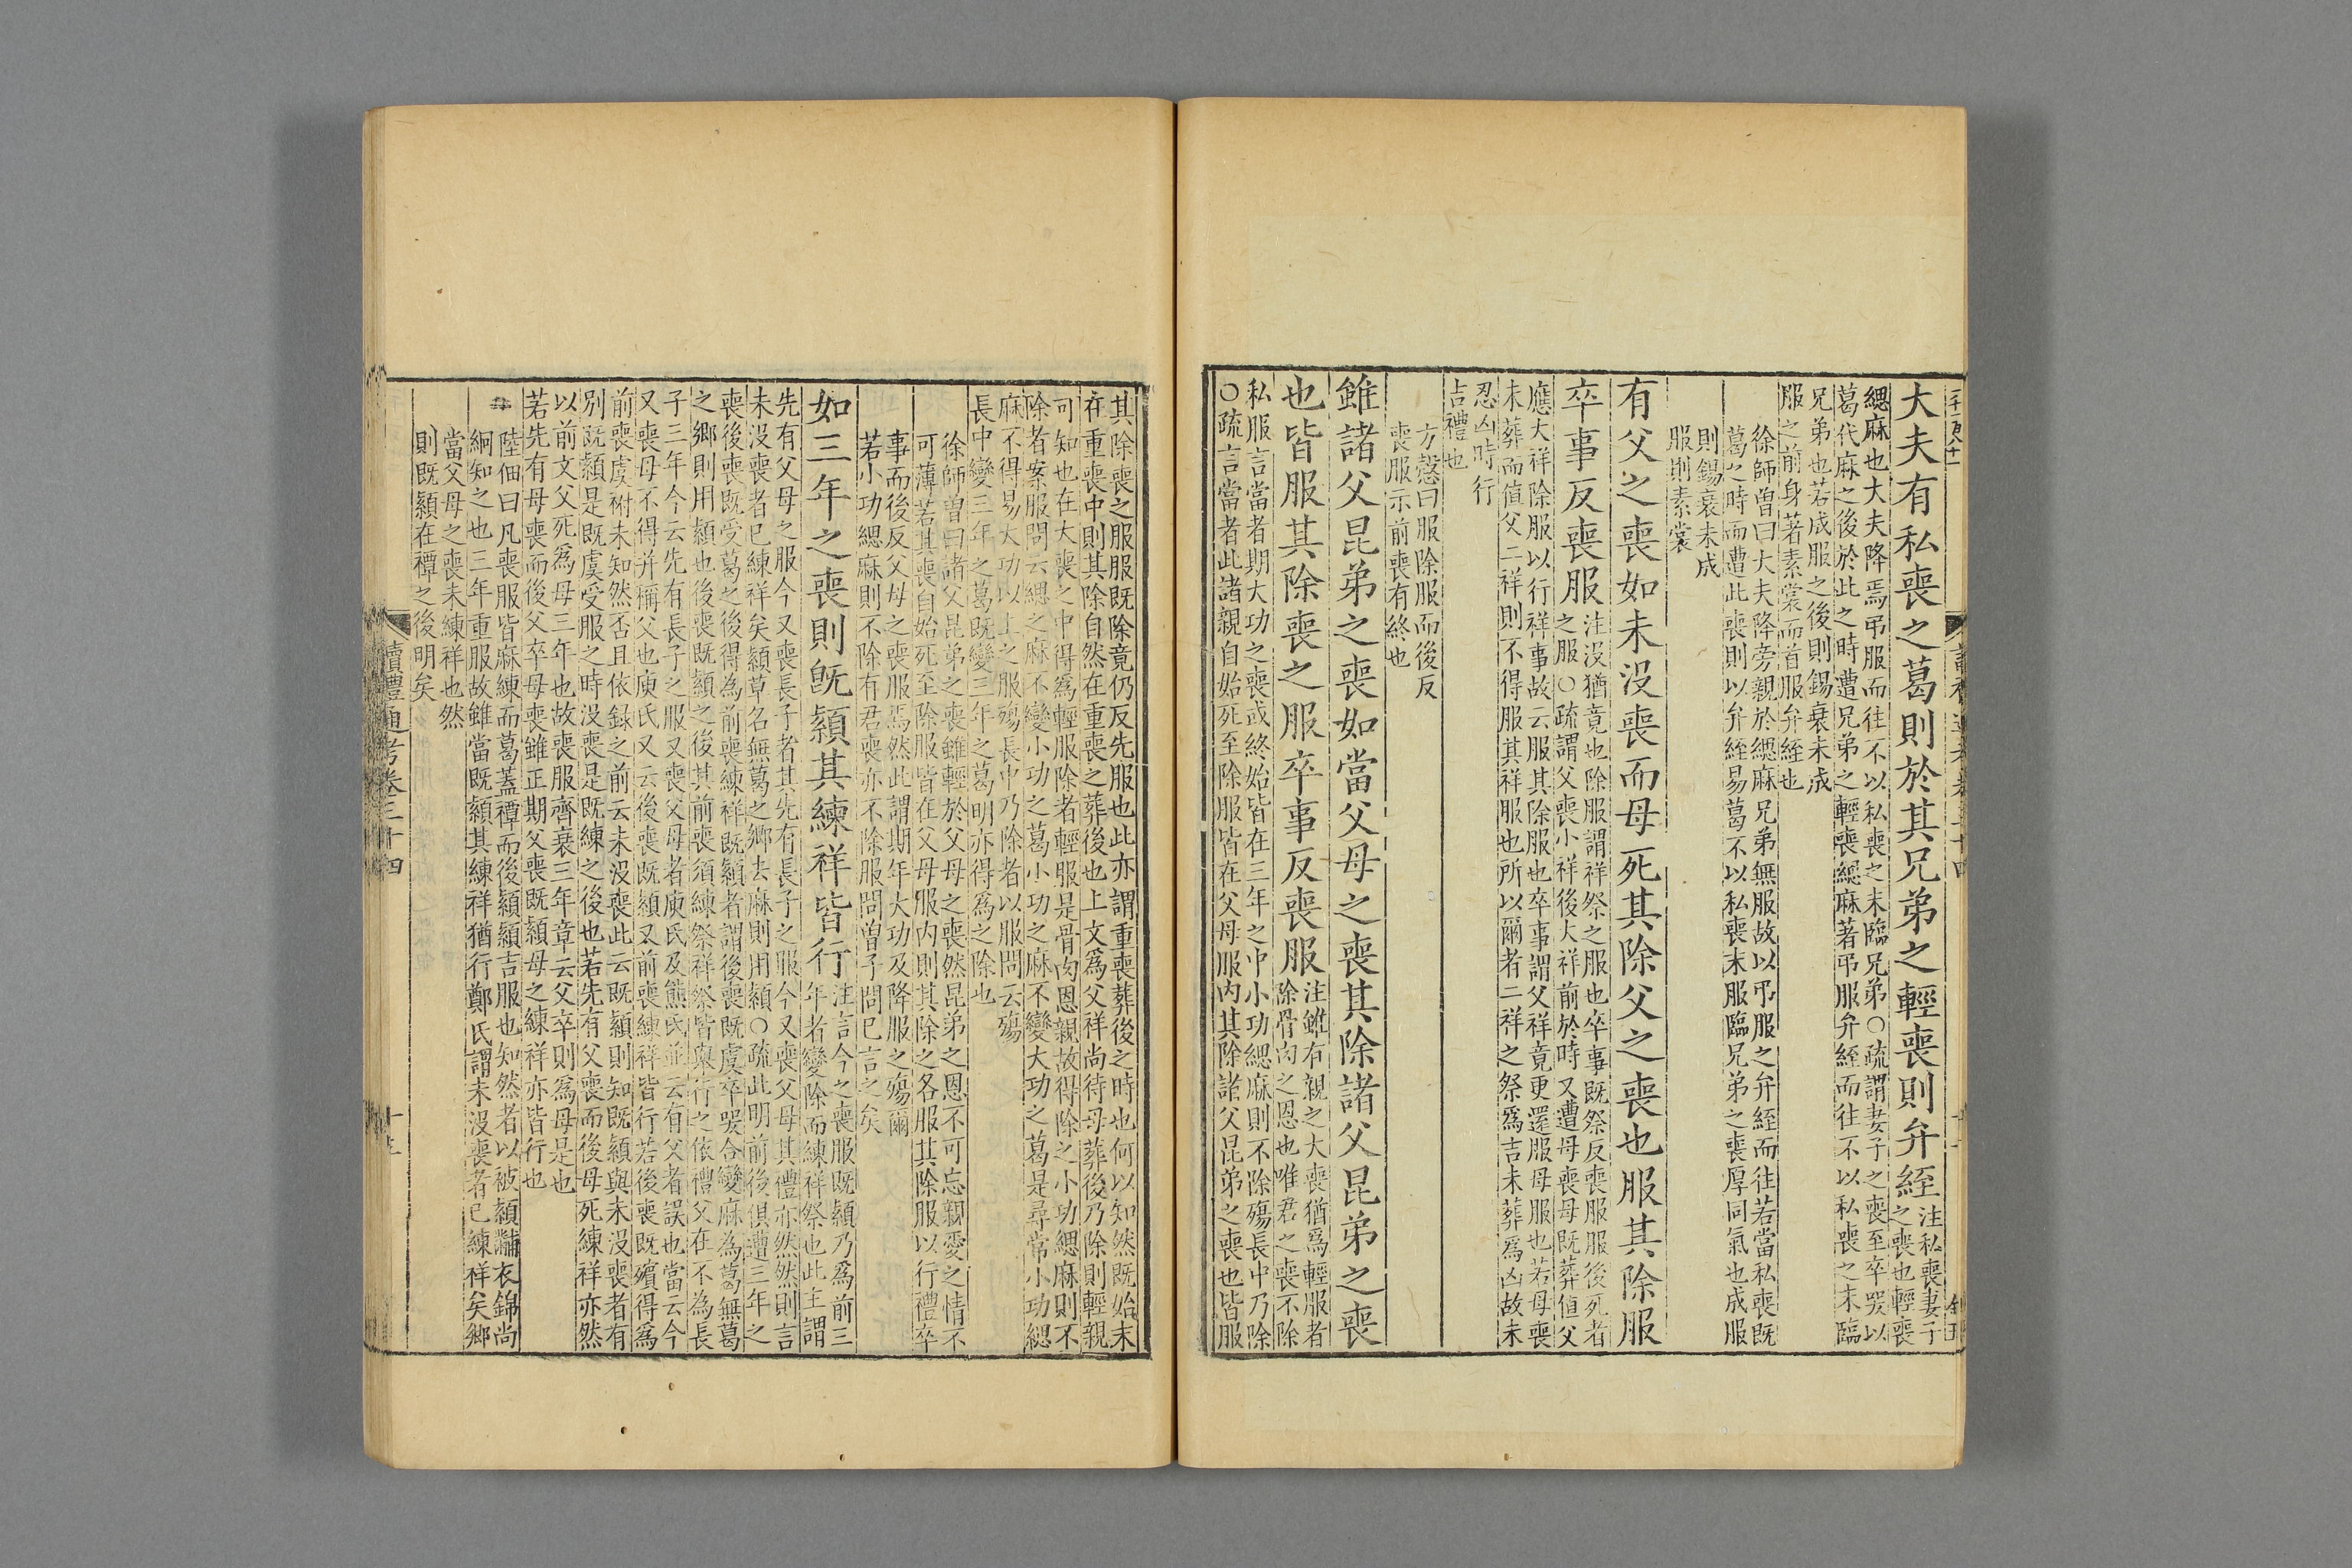 大夫有私喪之葛則於其兄弟之輕喪則弁絰注私喪妻子
之喪也輕喪
緦麻也大夫降焉弔服而往不以私喪之末臨兄弟○疏謂妻子之喪至卒哭以
葛代麻之後於此之時遭兄弟之輕喪緦麻著弔服弁絰而往不以私喪之末臨
兄弟也若成服之後則錫衰未成
服之前身著素裳而首服弁絰也
徐師曾曰大夫降旁親於緦麻兄弟無服故以弔服之弁絰而往若當私喪既
葛之時而遭此喪則以弁絰易葛不以私喪末服臨兄弟之喪厚同氣也成服
則錫衰未成
服則素裳
有父之喪如未沒喪而母死其除父之喪也服其除服
卒事反喪服注沒猶竟也除服謂祥祭之服也卒事既祭反喪服服後死者
之服○疏謂父喪小祥後大祥前於時又遭母喪母既葬值父
應大祥除服以行祥事故云服其除服也卒事謂父祥竟更還服母服也若母喪
未葬而值父二祥則不得服其祥服也所以爾者二祥之祭爲吉未葬爲凶故未
忍凶時行
吉禮也
方慤曰服除服而後反
喪服示前喪有終也
雖諸父昆弟之喪如當父母之喪其除諸父昆弟之喪
也皆服其除喪之服卒事反喪服注雖有親之大喪猶爲輕服者
除骨肉之恩也唯君之喪不除
私服言當者期大功之喪或終始皆在三年之中小功緦麻則不除殤長中乃除
○疏言當者此諸親自始死至除服皆在父母服內其除諸父昆弟之喪也皆服
其除喪之服服既除竟仍反先服也此亦謂重喪葬後之時也何以知然既始末
在重喪中則其除自然在重喪之葬後也上文爲父祥尚待母葬後乃除則輕親
可知也在大喪之中得爲輕服除者輕服是骨肉恩親故得除之小功緦麻則不
除者案服問云緦之麻不變小功之葛小功之麻不變大功之葛是尋常小功緦
麻不得易大功以上之服殤長中乃除者以服問云殤
長中變三年之葛既變三年之葛明亦得爲之除也
徐師曾曰諸父昆弟之喪雖輕於父母之喪然昆弟之恩不可忘親愛之情不
可薄若其喪自始死至除服皆在父母服內則其除之各服其除服以行禮卒
事而後反父母之喪服焉然此謂期年大功及降服之殤爾
若小功緦麻則不除有君喪亦不除服問曾子問已言之矣
如三年之喪則既顈其練祥皆行注言今之喪服既顈乃爲前三
年者變除而練祥祭也此主謂
先有父母之服今又喪長子者其先有長子之服今又喪父母其禮亦然然則言
未沒喪者已練祥矣顈草名無葛之鄉去麻則用顈○疏此明前後俱遭三年之
喪後喪既受葛之後得為前喪練祥既顈者謂後喪既虞卒哭合變麻為葛無葛
之鄉則用顈也後喪既顈之後其前喪須練祭祥祭皆舉行之依禮父在不為長
子三年今云先有長子之服又喪父母者庾氏及熊氏並云有父者誤也當云今
又喪母不得并稱父也庾氏又云後喪既顈又前喪練祥皆行若後喪既殯得爲
前喪虞祔未知然否且依録之前云未沒喪此云既顈則知既顈與未沒喪者有
別既顈是既虞受服之時沒喪是既練之後也若先有父喪而後母死練祥亦然
以前文父死爲母三年也故喪服齊衰三年章云父卒則爲母是也
若先有母喪而後父卒母喪雖正期父喪既顈母之練祥亦皆行也
陸佃曰凡喪服皆麻練而葛蓋禫而後顈顈吉服也知然者以被顈黼衣錦尚
絅知之也三年重服故雖當既顈其練祥猶行鄭氏謂未沒喪者已練祥矣鄉
當父母之喪未練祥也然
則既顈在禫之後明矣
讀禮通考卷三十四